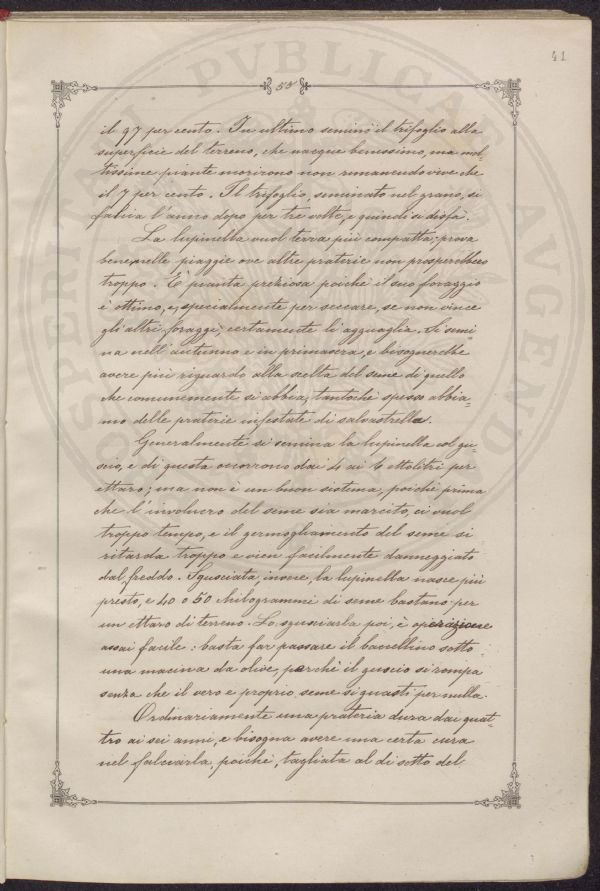 41
55
il 97 per cento. In ultimo seminò il trifoglio alla
superficie del terreno, che nacque benissimo, ma mol-
tissime piante morirono non rimanendo vive che
il 7 per cento. Il trifoglio, seminato nel grano, si
falcia l'anno dopo per tre volte, e quindi si disfà.
La lupinella vuol terra più compatta; prova
bene nelle piaggie ove altre praterie non prospererebbero
troppo. È pianta preziosa poichè il suo foraggio
è ottimo, e, specialmente per seccare, se non vince
gli altri foraggi, certamente li agguaglia. Si semi
na nell'autunno e in primavera, e bisognerebbe
avere più riguardo alla scelta del seme di quello
che comunemente si abbia, tantochè spesso abbia-
mo delle praterie infestate di salvastrella.
Generalmente si semina la lupinella col gu-
scio, e di questa occorrono dai 4 ai 6 ettolitri per
ettaro; ma non è un buon sistema, poichè prima
che l'involucro del seme sia marcito, ci vuol
troppo tempo, e il germogliamento del seme si
ritarda troppo e vien facilmente danneggiato
dal freddo. Sgusciata, invece, la lupinella nasce più
presto, e 40 o 50 chilogrammi di seme bastano per
un ettaro di terreno. Lo sgusciarla poi, è operazione
assai facile: basta far passare il baccellino sotto
una macina da olive, perchè il guscio si rompa
senza che il vero e proprio seme si guasti per nulla.
Ordinariamente una prateria dura dai quat-
tro ai sei anni, e bisogna avere una certa cura
nel falciarla, poichè, tagliata al di sotto del